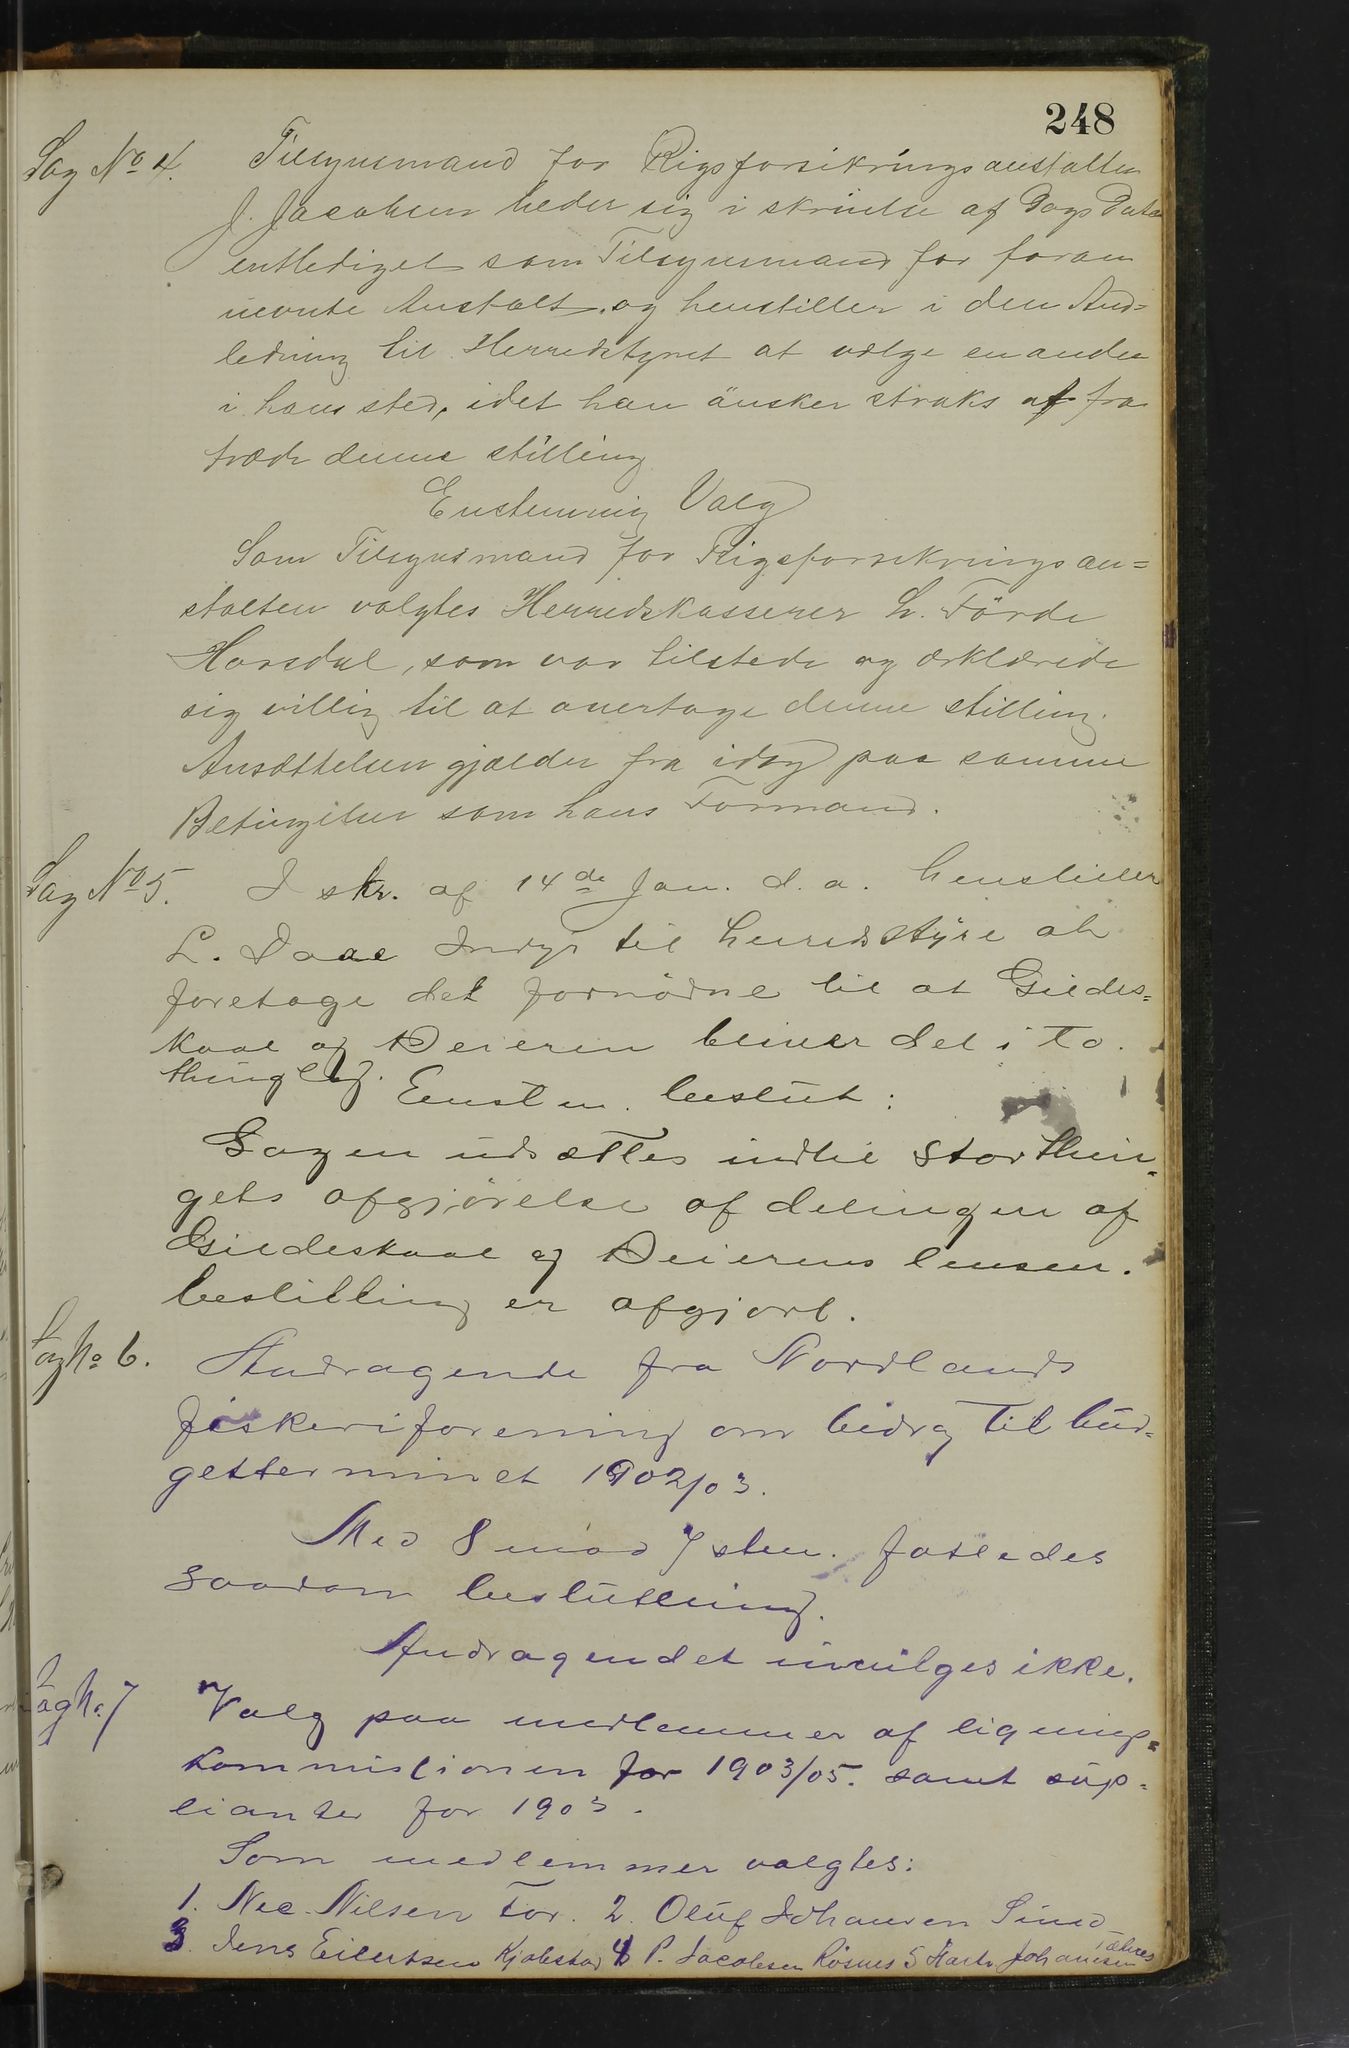 248
Sag No 4. Tilsynsmand for Rigsforsikringsanstalten
J. Jacobsen beder sig i skrivelse af Dags Dato
entlediget som Tilsynsmand for foran
nevnte Anstalt, og henstiller i den And=
ledning til Herredstyret at vælge en anden
i hans sted, idet han önsker straks at fra
træde denne stilling
Enstemmig Valg
Som Tilsynsmand for Rigsforsikringsan=
stalten valgtes Herredskasserer H. Förde
Horsdal, som var tilstede og erklærede
sig villig til at overtage denne stilling.
Ansættelsen gjælder fra idag paa samme
Betingelser som hans Formand.
Sag No 5. I skr. af 14de Jan. d. a. henstiller
L. Daae Indyr til herredsstyre at
foretage det fornödne til at Gildes=
kaal og Beieren bliver delt i to
thinglag.
Enstem. beslut:
Sagen udsættes indtil Storthin=
gets afgjörelse af delingen af
Gildeskaal og Beierens lensm.
bestilling er afgjort.
Sag No 6. Andragende fra Nordlands
fiskeriforening om bidrag til büd=
getterminet 1902/03.
Med 8 mod 7 stem. fattedes
saadan beslütning.
Andragendet indvilges ikke.
Sag No 7 Valg paa medlemmer af ligning=
kommissionen for 1903/05. samt süp=
lianter for 1903.
Som medlemmer valgtes:
1. Nic. Nilsen For. 2. Olüf Johansen Sund
3. Jens Eilertsen Kjelstad 4 P. Jacobsen Rösnes 5 Hartv. Johansen